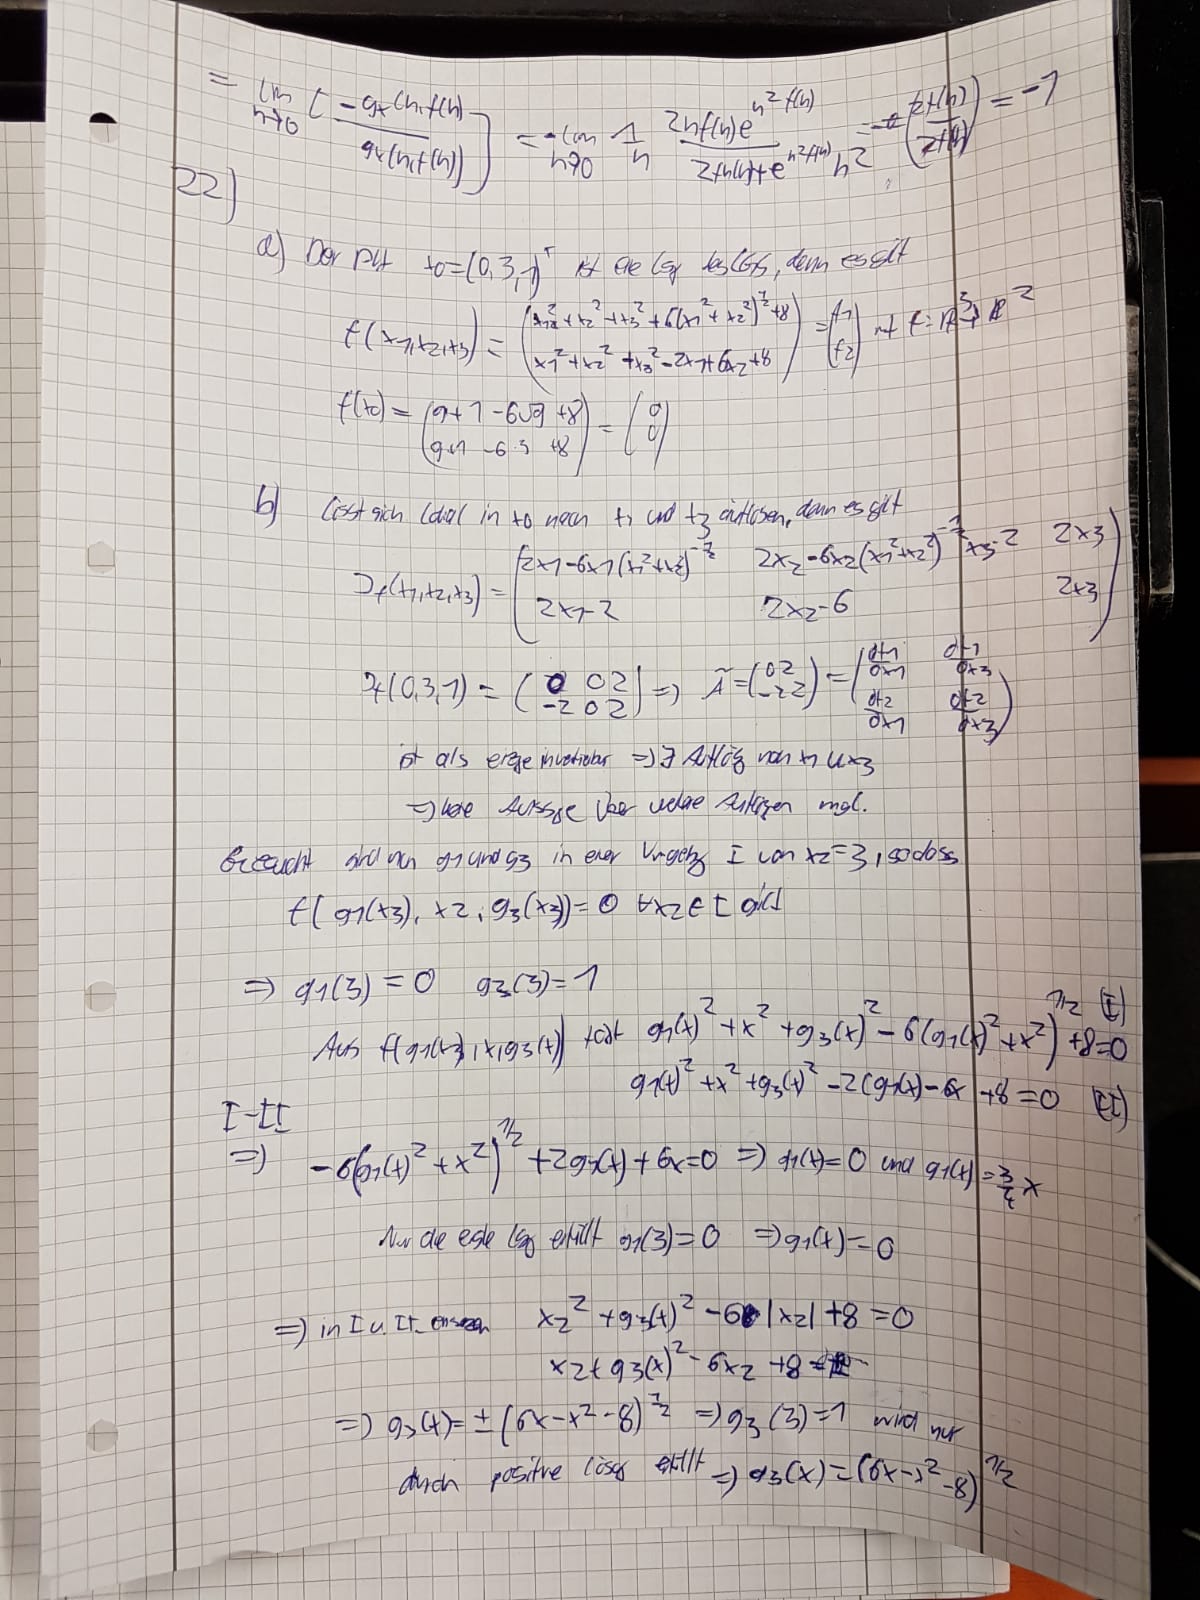 = lim h→0 [ -gx(h,f(h)) / gx(h,f(h)) ] = -lim h→0 1/h 2hf(h)e^{h²f(h)} / 2f(h)+e^{h²f(h)}h² = (2f(h) / 2f(h)) = -1
22)
a) Der Pkt x0=(0,3,1)^T ist eine Lsg des LGS, denn es gilt
f(x1,x2,x3) = ( x1²+x2²+x3²+6(x1²+x2²)^{1/2}+8 ; x1²+x2²+x3²-2x1+6x2+8 ) = (f1 ; f2) mit f: R³→R²
f(x0) = ( 9+1-6√9+8 ; 9+1-6·3+8 ) = (0 ; 0)
b) Lässt sich lokal in x0 nach x1 und x3 auflösen, denn es gilt
Jf(x1,x2,x3) = ( 2x1-6x1(x1²+x2²)^{-1/2} 2x2-6x2(x1²+x2²)^{-1/2} 2x3 ; 2x1-2 2x2-6 2x3 )
Jf(0,3,1) = ( 0 0 2 ; -2 0 2 ) => Ã = ( 0 2 ; -2 2 ) = ( df1/dx1 df1/dx3 ; df2/dx1 df2/dx3 )
ist als einzige invertierbar => ∃ Auflösg von x1 u x3
=> keine Aussage über weitere Auflösgen mgl.
Gesucht sind nun g1 und g3 in einer Umgebg I von x2=3, sodass
f( g1(x3), x2, g3(x3)) = 0 ∀x2∈I gilt
=> g1(3) = 0 g3(3) = 1
Aus f(g1(x),x,g3(x)) folgt g1(x)²+x²+g3(x)²-6(g1(x)²+x²)^{1/2}+8=0 (I)
g1(x)²+x²+g3(x)²-2(g1(x)-6x+8=0 (II)
I-II
=> -6(g1(x)²+x²)^{1/2}+2g1(x)+6x=0 => g1(x)=0 und g1(x)=3/4 x
Nur die erste Lsg erfüllt g1(3)=0 => g1(x)=0
=> in I u. II x2²+g3(x)²-6|x2|+8=0
x2+g3(x)²-6x2+8=
=> g3(x)=±(6x-x²-8)^{1/2} => g3(3)=1 wird nur
durch positive Lösg erfüllt => g3(x)=(6x-x²-8)^{1/2}